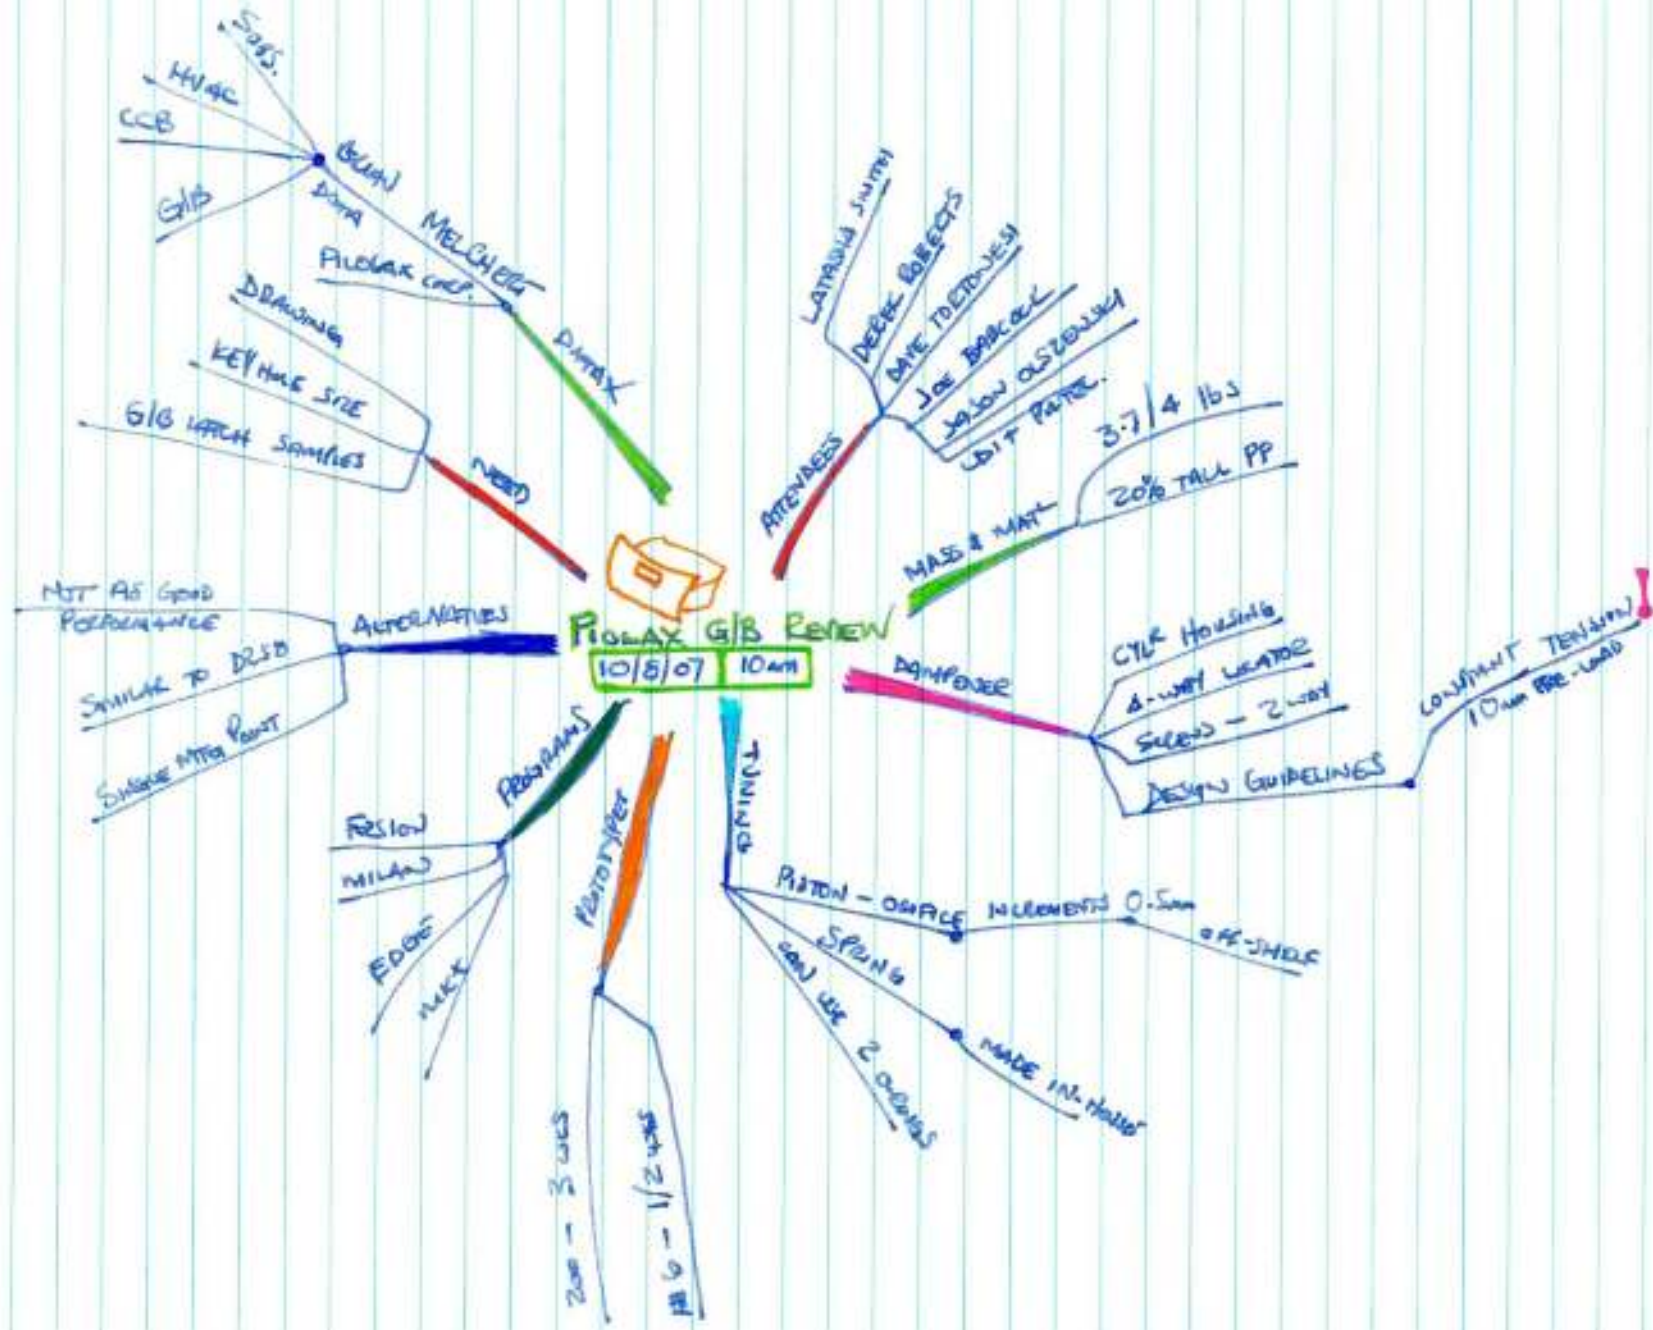 PIOLAX G/B REVIEW
10/8/07 10am
ATTENDEES
LATASHA SMITH
DEREK ROBERTS
DAVE TORTONESI
JOE BABCOCK
JASON OLSZEWSKI
UDIT PATEL.
MASS & MAT'L
3.7/4 lbs
20% TALC PP
DAMPENER
CYLR HOUSING
4-WAY LOCATOR
SCREW - 2 WAY
DESIGN GUIDELINES
CONSTANT TENSION
10mm PRE-LOAD
TUNING
PISTON - ORIFICE INCREMENTS 0.5mm
OFF-SHELF
SPRING
MADE IN-HOUSE
CAN USE 2 O-RINGS
PROTOTYPES
1/2 HRS
200 - 3 WKS
PROGRAMS
FUSION
MILAN
EDGE
MKX
ALTERNATIVES
NOT AS GOOD
PERFORMANCE
SIMILAR TO D258
SINGLE MTG POINT
NEED
DRAWING
KEYHOLE SIZE
G/B LATCH SAMPLES
DATAX
PILOLAX CORP.
MELCHERT
DATA
SUBS.
HVAC
CCB
G/B